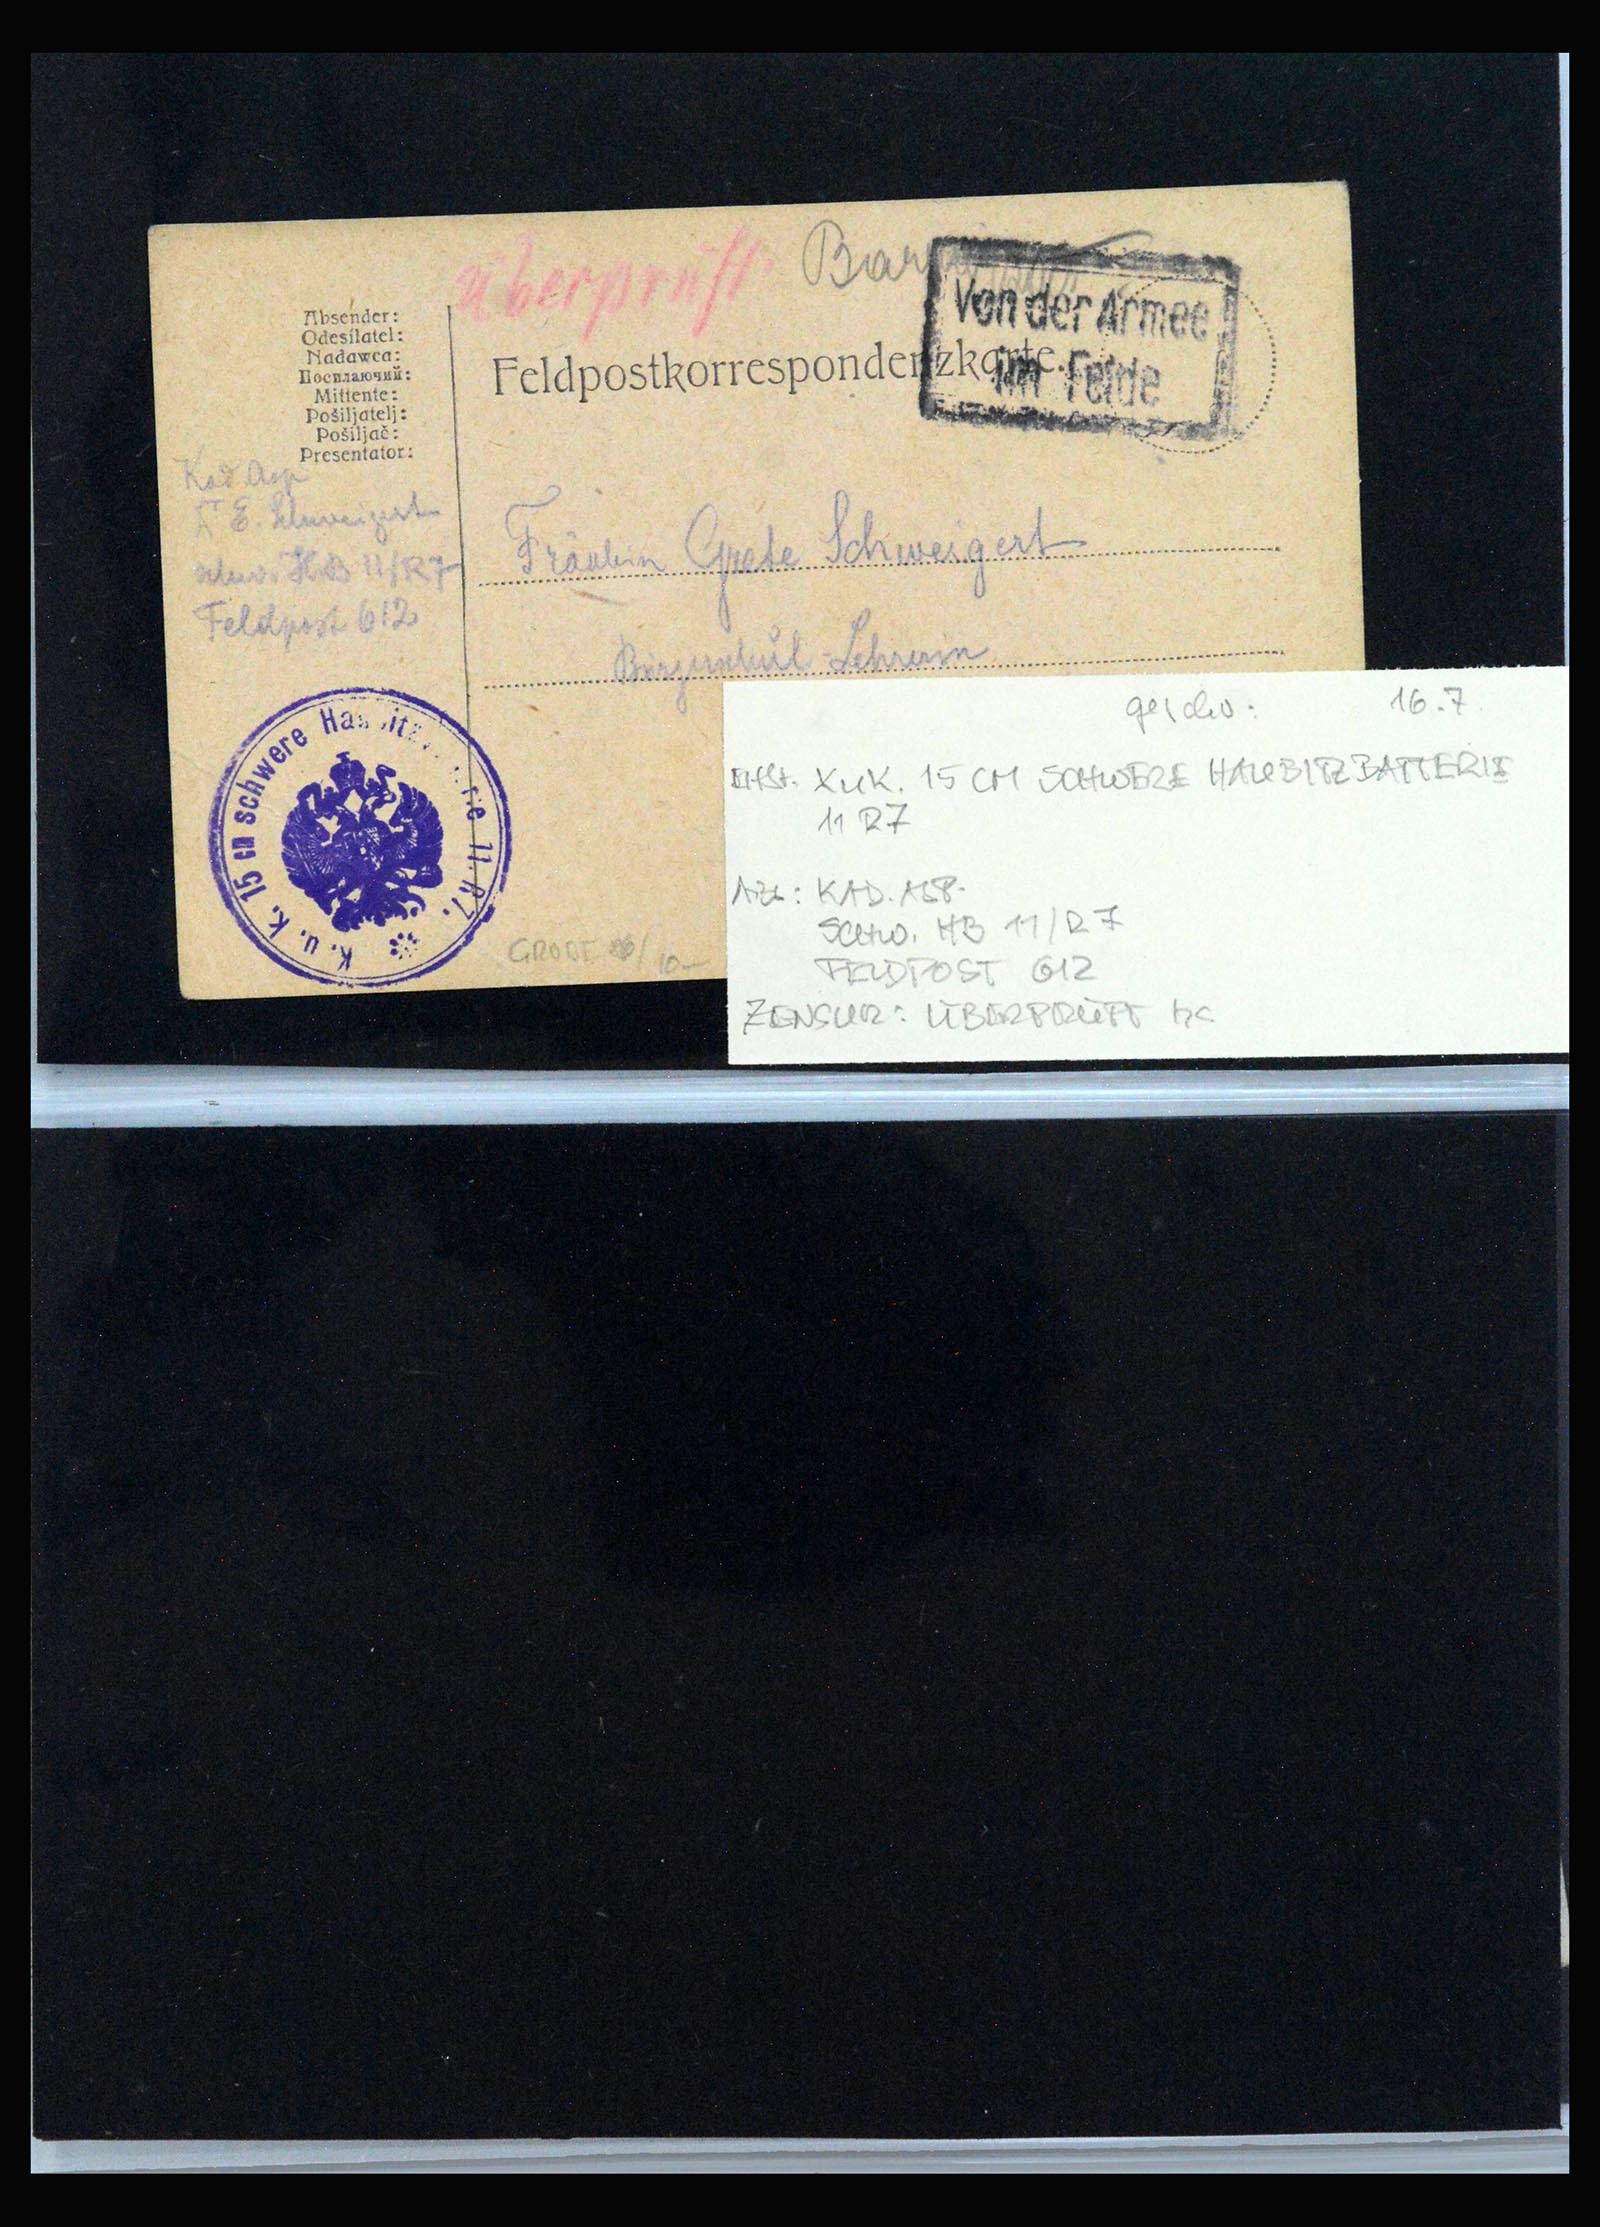 überprüft.
Von der Armee
im Felde
Feldpostkorrespondenzkarte.
Absender:
Odesílatel:
Nadawca:
Посилаючий:
Mittente:
Pošiljatelj:
Pošiljač:
Presentator:
Kad. Asp
E. Schweigert
schw. H.B 11/R7
Feldpost 612
Fräulein Grete Schweigert
Lehrerin
K. u. K. 15 cm schwere 11. R7.
GROBE
10-
geschr: 16.7.
K.u.K. 15 CM SCHWERE HAUBITZBATTERIE
11 R7
KAD. ASP.
SCHW. HB 11/R7
FELDPOST 612
ZENSUR: ÜBERPRÜFT hs